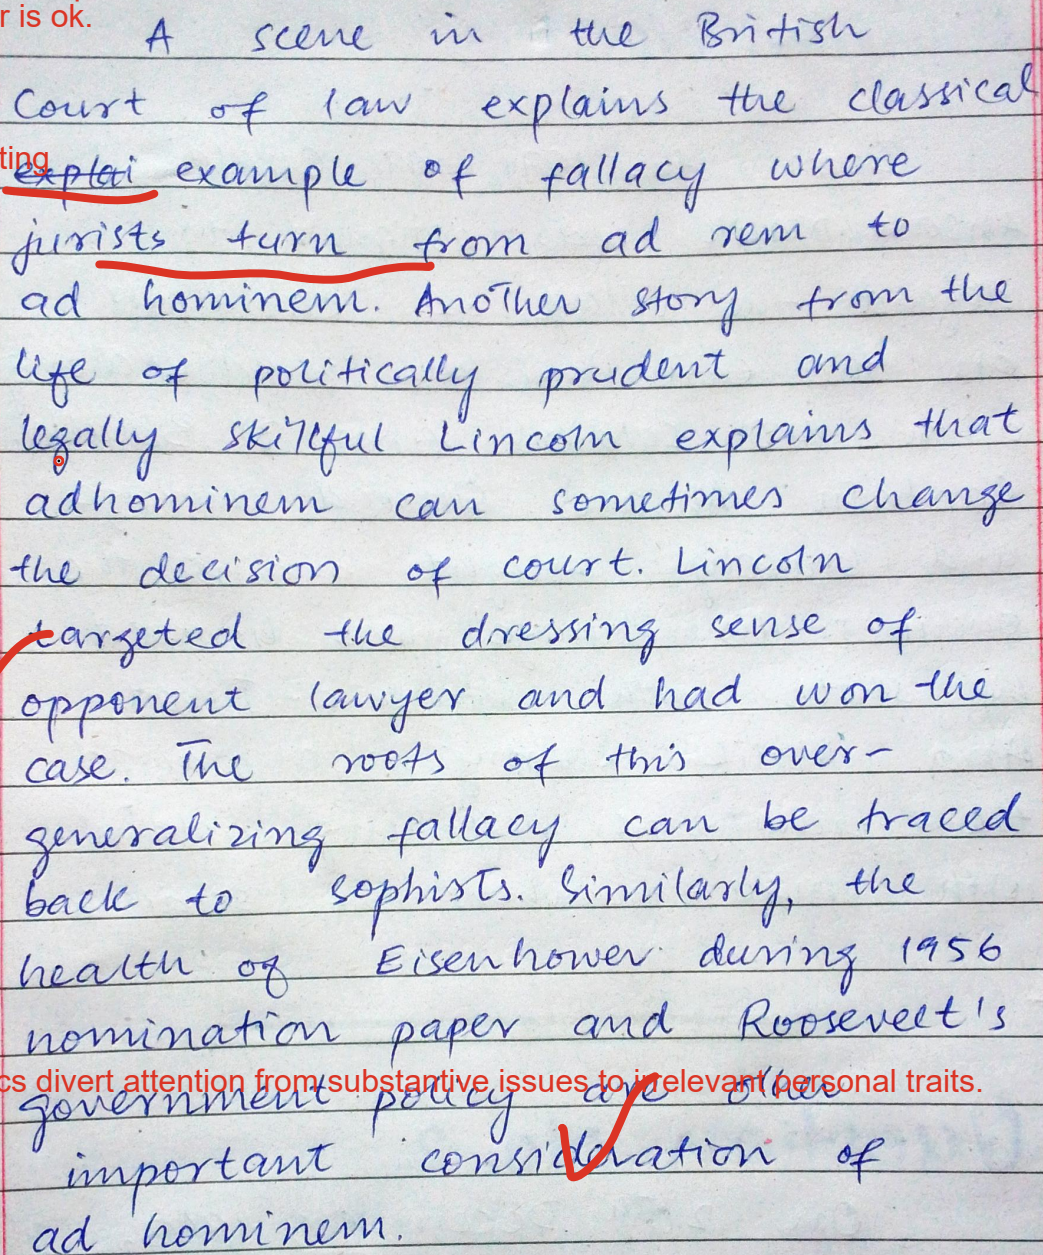 r is ok.
A scene in the British
Court of law explains the classical
ting
explai example of fallacy where
jurists turn from ad rem to
ad hominem. Another story from the
life of politically prudent and
legally skillful Lincoln explains that
adhominem can sometimes change
the decision of court. Lincoln
targeted the dressing sense of
opponent lawyer and had won the
case. The roots of this over-
generalizing fallacy can be traced
back to sophists. Similarly, the
health of Eisenhower during 1956
nomination paper and Roosevelt's
cs divert attention from substantive issues to irrelevant personal traits.
government policy are other
important consideration of
ad hominem.